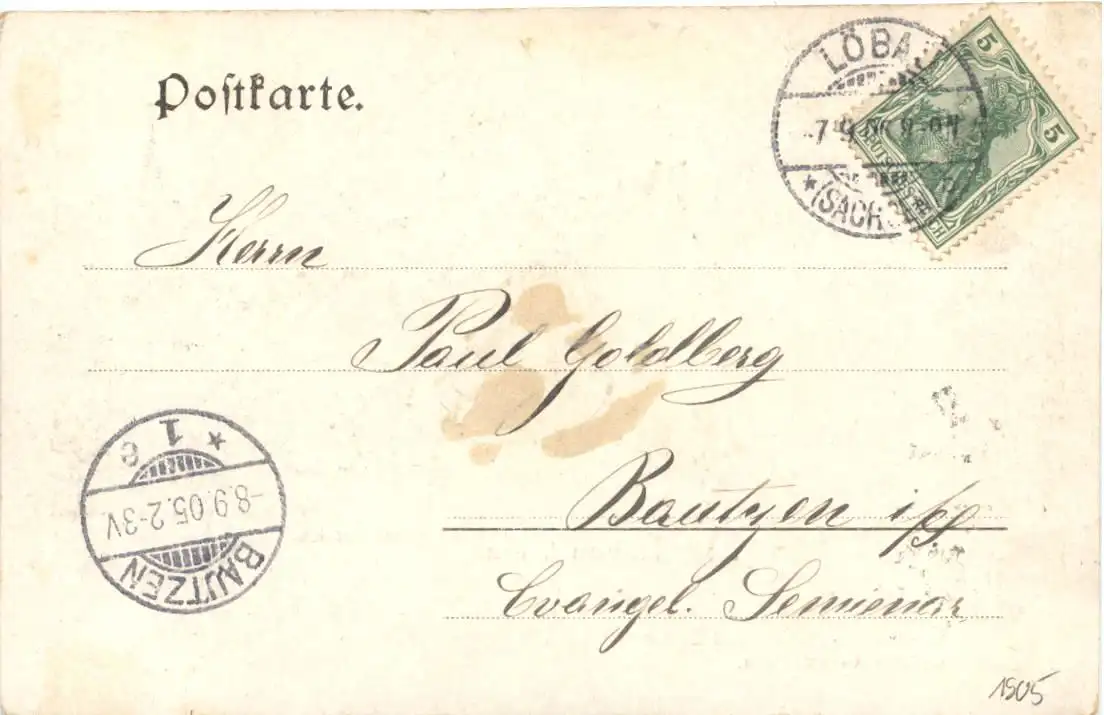 Postkarte.
LÖBAU
7 9 05 8-9N
*(SACHS
5
5
DEUTSCHES REICH
Herrn
Paul Goldberg
Bautzen i/S
Evangel. Semienar
1 e
-8.9.05.2-3V
BAUTZEN
1905